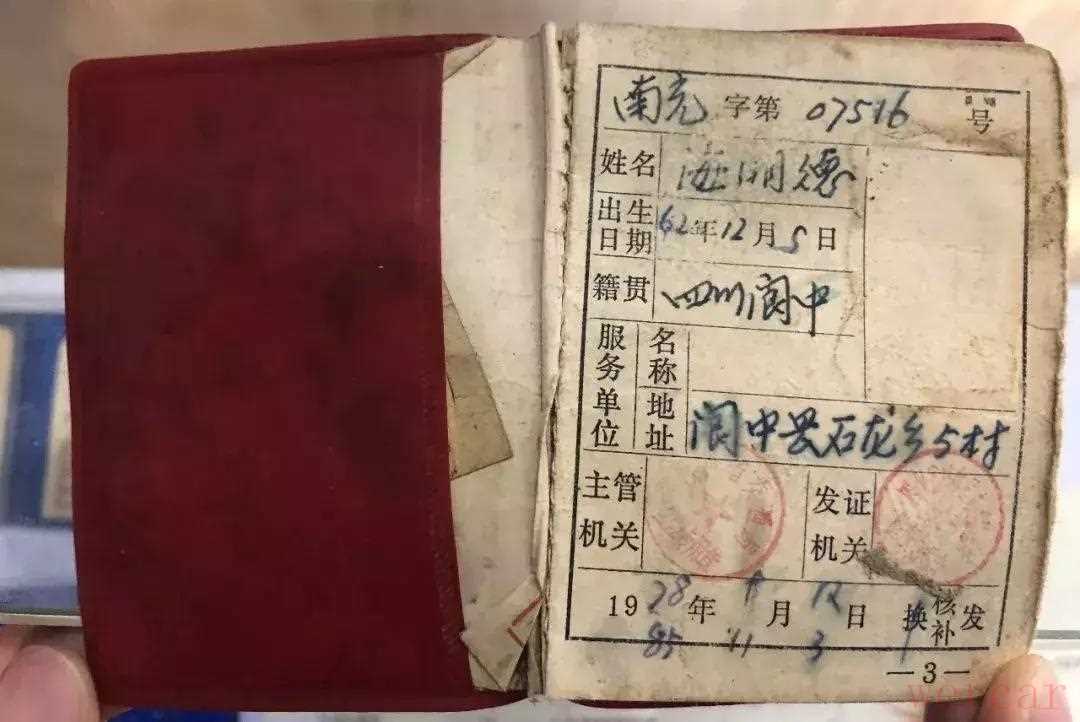 南充 字第 07516 号
姓名 明德
出生日期 62年12月5日
籍贯 四川阆中
服务单位 名称
地址 阆中县石龙乡5村
主管机关 发证机关
19 年 月12日 换 核补 发
85 11 3
—3—